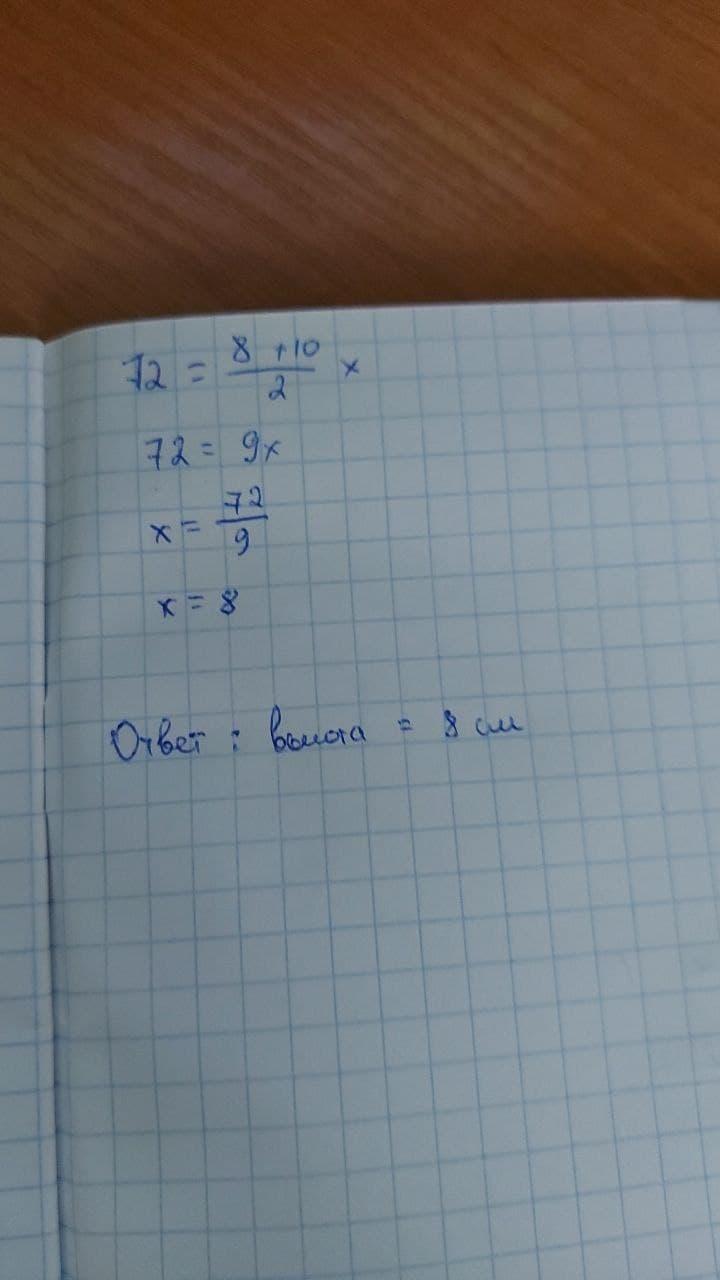 72 = 8 + 10 / 2 x
72 = 9x
x = 72 / 9
x = 8
Ответ : высота = 8 см